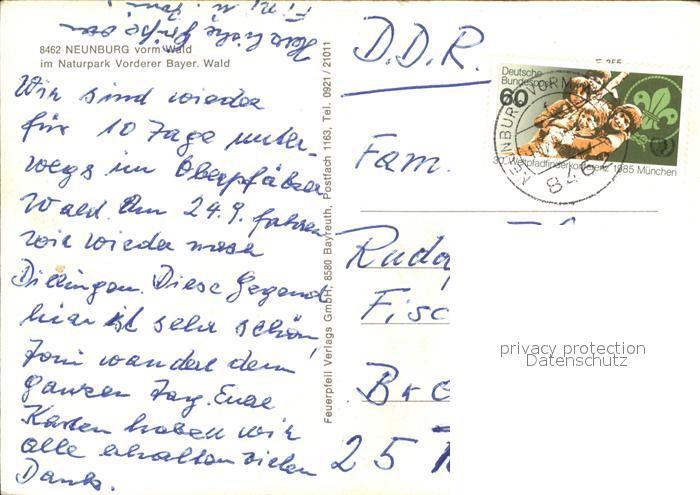 Herzliche Grüße von
8462 NEUNBURG vorm Wald
im Naturpark Vorderer Bayer. Wald
Wir sind wieder
für 10 Tage unter-
wegs im Oberpfälzer
Wald. Am 24.9. fahren
wir wieder nach
Dillingen. Diese Gegend
hier ist sehr schön,
Toni wandert den
ganzen Tag. Eure
Karten haben wir
alle erhalten vielen
Dank.
Feuerpfeil Verlags GmbH, 8580 Bayreuth, Postfach 1163, Tel. 0921 / 21011
D.D.R.
Deutsche
Bundespost
60
30. Weltpfadfinderkonferenz 1985 München
NEUNBURG VORM
8462
Fam.
Rudo
Fisc
Bre
25
privacy protection
Datenschutz